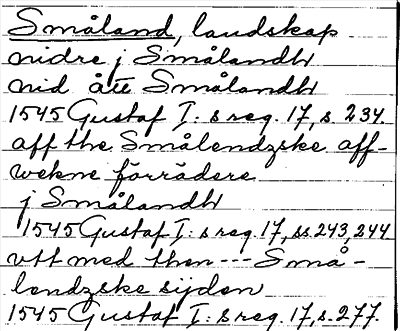 Småland, landskap
nidre j Smålandh
nid ått Smålandh
1545 Gustaf I: s reg. 17, s. 234.
aff the Smålendzske aff-
wekne förrädere
j Smålandh
1545 Gustaf I: s reg. 17, ss. 243, 244
vtt med then --- Små-
lendzske sijden
1545 Gustaf I: s reg. 17, s. 277.